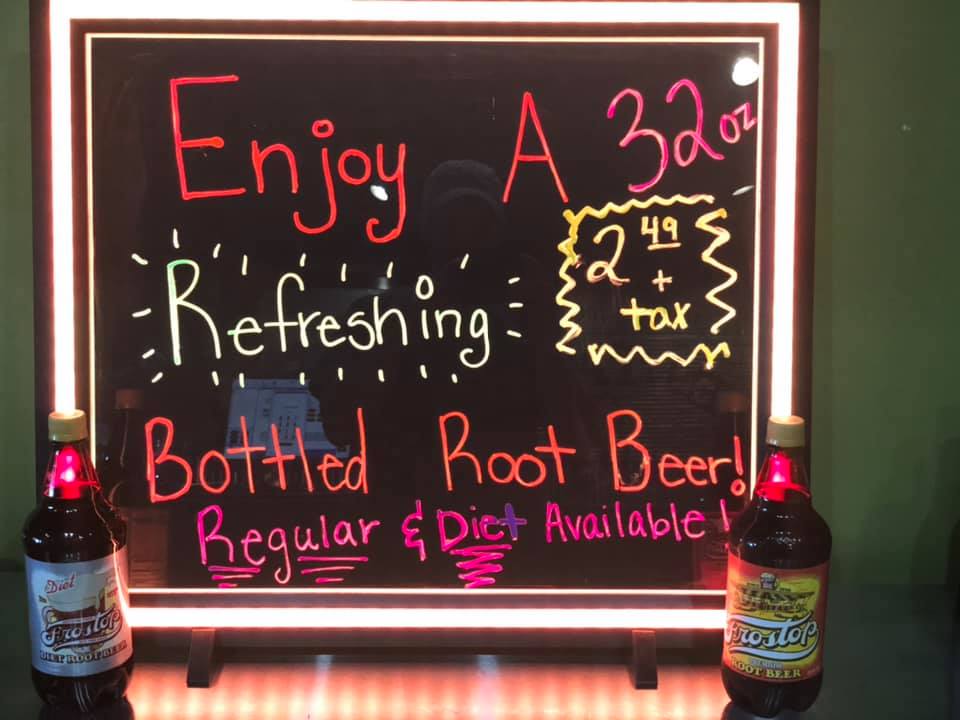 Enjoy A 32oz
2 49
+
tax
Refreshing
Bottled Root Beer!
Regular & Diet Available!
Diet
Frostop
DIET ROOT BEER
Frostop
ROOT BEER